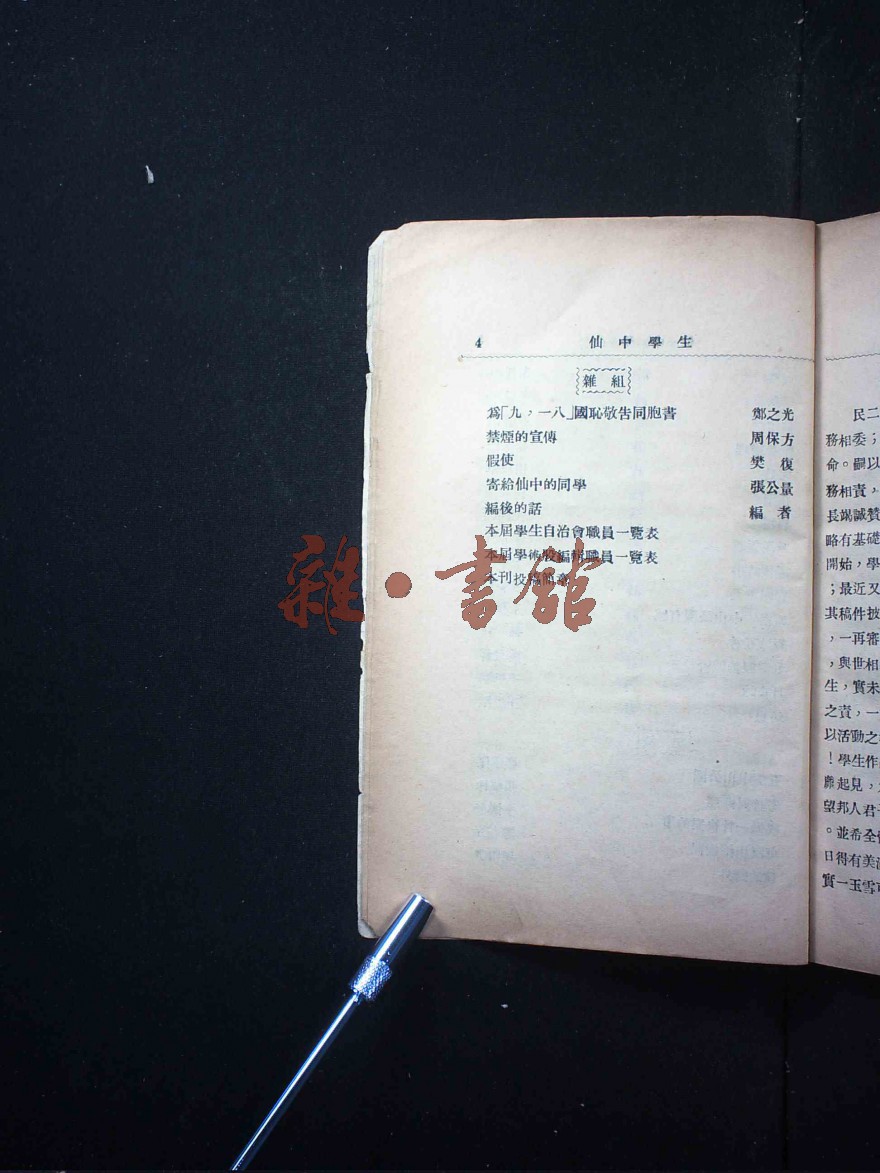 4 仙中學生
雜組
爲「九，一八」國恥敬告同胞書 鄭之光
禁煙的宣傳 周保方
假使 樊復
寄給仙中的同學 張公量
編後的話 編者
本屆學生自治會職員一覽表
本屆學術股編輯職員一覽表
本刊投稿簡章
雜·書館
民二
務相委；
命。嗣以
務相責，
長竭誠贊
略有基礎
開始，學
；最近又
其稿件披
，一再審
，與世相
生，實未
之責，一
以活動之
！學生作
難起見，
望邦人君
。並希全
日得有美
實一玉雪